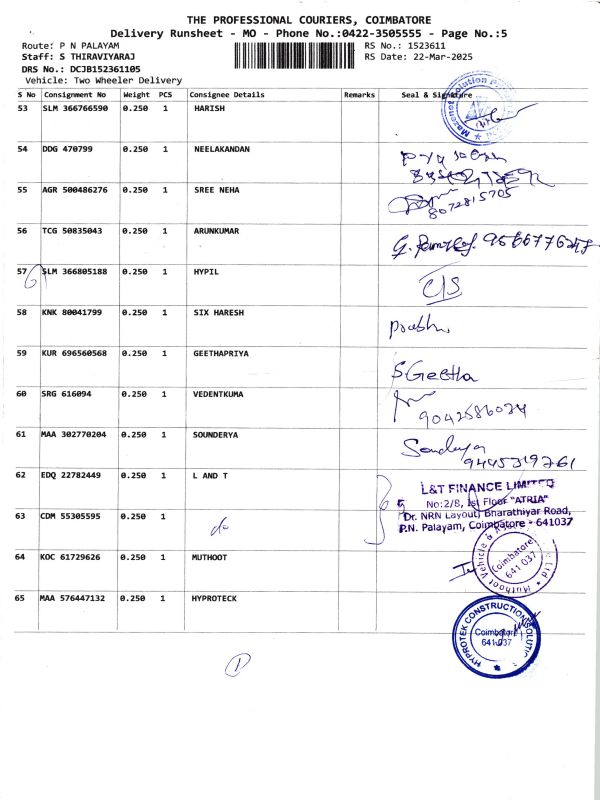 THE PROFESSIONAL COURIERS, COIMBATORE
Delivery Runsheet - MO - Phone No.:0422-3505555 - Page No.:5
Route: P N PALAYAM
RS No.: 1523611
Staff: S THIRAVIYARAJ
RS Date: 22-Mar-2025
DRS No.: DCJB152361105
Vehicle: Two Wheeler Delivery
S No Consignment No Weight PCS Consignee Details Remarks Seal & Signature
53 SLM 366766590 0.250 1 HARISH
54 DDG 470799 0.250 1 NEELAKANDAN
55 AGR 500486276 0.250 1 SREE NEHA
8072815705
56 TCG 50835043 0.250 1 ARUNKUMAR
57 SLM 366805188 0.250 1 HYPIL
C/S
58 KNK 80041799 0.250 1 SIX HARESH
Prabhu
59 KUR 696560568 0.250 1 GEETHAPRIYA
S Geetha
60 SRG 616094 0.250 1 VEDENTKUMA
9042586024
61 MAA 302770204 0.250 1 SOUNDERYA
9445319761
62 EDQ 22782449 0.250 1 L AND T
L&T FINANCE LIMITED
No:2/8, 1st Floor "ATRIA"
63 CDM 55305595 0.250 1 do
Dr. NRN Layout, Bharathiyar Road,
P.N. Palayam, Coimbatore - 641037
64 KOC 61729626 0.250 1 MUTHOOT
Coimbatore
641 037
65 MAA 576447132 0.250 1 HYPROTECK
HYPROTEK CONSTRUCTION SOLUTIONS
Coimbatore
641 037
1